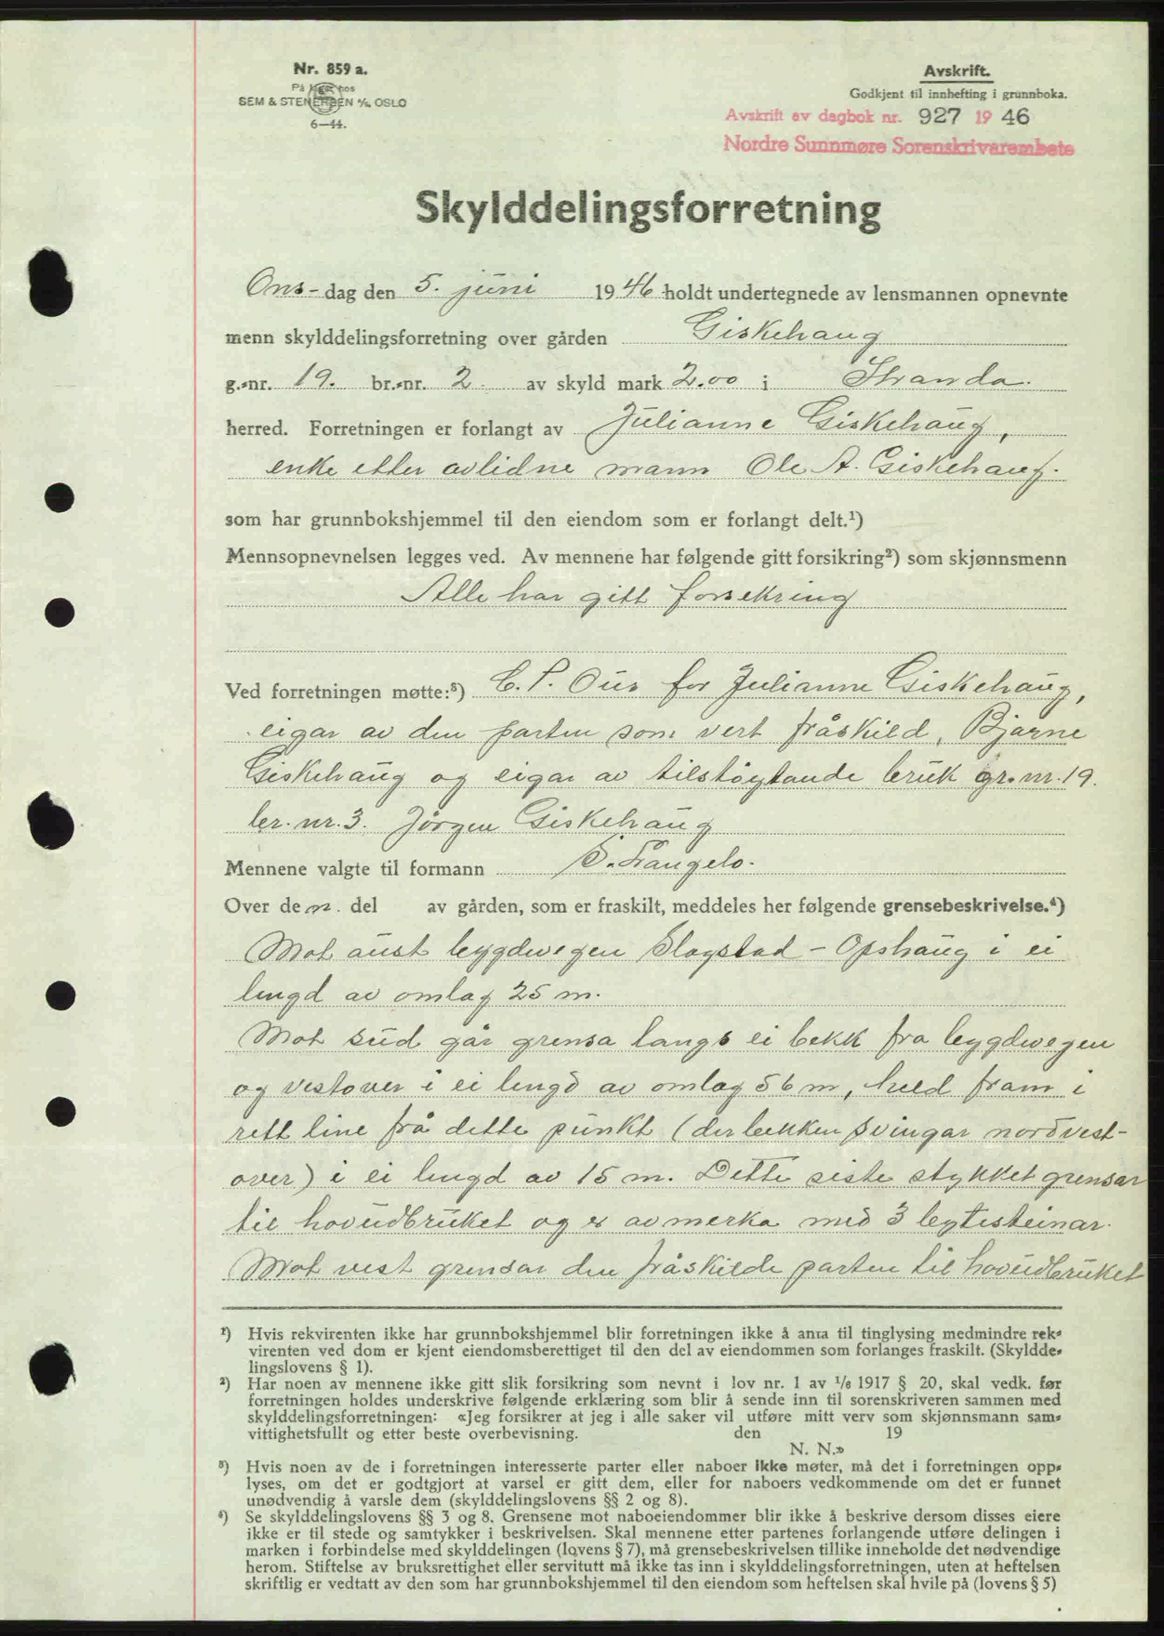 Nr. 859 a.
På lager hos
SEM & STENERSEN A/S OSLO
6—44.
Avskrift.
Godkjent til innhefting i grunnboka.
Avskrift av dagbok nr. 927 19 46
Nordre Sunnmøre Sorenskrivarembete
Skylddelingsforretning
Ons-dag den 5. juni 1946 holdt undertegnede av lensmannen opnevnte
menn skylddelingsforretning over gården Giskehaug
g.-nr. 19. br.-nr. 2 av skyld mark 2.00 i Stranda.
herred. Forretningen er forlangt av Julianne Giskehaug,
enke etter avlidne mann Ole A. Giskehaug.
som har grunnbokshjemmel til den eiendom som er forlangt delt.¹)
Mennsopnevnelsen legges ved. Av mennene har følgende gitt forsikring²) som skjønnsmenn
Alle har gitt forsekring
Ved forretningen møtte:³) C. P. Ous for Julianne Giskehaug,
eigar av den parten som vert fråskild, Bjarne
Giskehaug og eigar av tilstøytande bruk gr. nr. 19.
br. nr. 3. Jørgen Giskehaug
Mennene valgte til formann S. Langelo.
Over den del av gården, som er fraskilt, meddeles her følgende grensebeskrivelse.⁴)
Mot aust bygdevegen Slagstad - Opshaug i ei
lengd av omlag 25 m.
Mot sud går grensa langs ei bekk fra bygdevegen
og vestover i ei lengd av omlag 56 m, held fram i
rett line frå dette punkt (der bekken svingar nordvest-
over) i ei lengd av 15 m. Dette siste stykket grensar
til hovudbruket og er avmerka med 3 bytisteinar.
Mot vest grensar den fråskilde parten til hovudbruket
¹) Hvis rekvirenten ikke har grunnbokshjemmel blir forretningen ikke å anta til tinglysing medmindre rek-
virenten ved dom er kjent eiendomsberettiget til den del av eiendommen som forlanges fraskilt. (Skyldde-
lingslovens § 1).
²) Har noen av mennene ikke gitt slik forsikring som nevnt i lov nr. 1 av 1/6 1917 § 20, skal vedk. før
forretningen holdes underskrive følgende erklæring som blir å sende inn til sorenskriveren sammen med
skylddelingsforretningen: «Jeg forsikrer at jeg i alle saker vil utføre mitt verv som skjønnsmann sam-
vittighetsfullt og etter beste overbevisning. den 19
N. N.»
³) Hvis noen av de i forretningen interesserte parter eller naboer ikke møter, må det i forretningen opp-
lyses, om det er godtgjort at varsel er gitt dem, eller for naboers vedkommende om det er funnet
unødvendig å varsle dem (skylddelingslovens §§ 2 og 8).
⁴) Se skylddelingslovens §§ 3 og 8. Grensene mot naboeiendommer blir ikke å beskrive dersom disses eiere
ikke er til stede og samtykker i beskrivelsen. Skal mennene etter partenes forlangende utføre delingen i
marken i forbindelse med skylddelingen (lovens § 7), må grensebeskrivelsen tillike inneholde det nødvendige
herom. Stiftelse av bruksrettighet eller servitutt må ikke tas inn i skylddelingsforretningen, uten at heftelsen
skriftlig er vedtatt av den som har grunnbokshjemmel til den eiendom som heftelsen skal hvile på (lovens § 5)